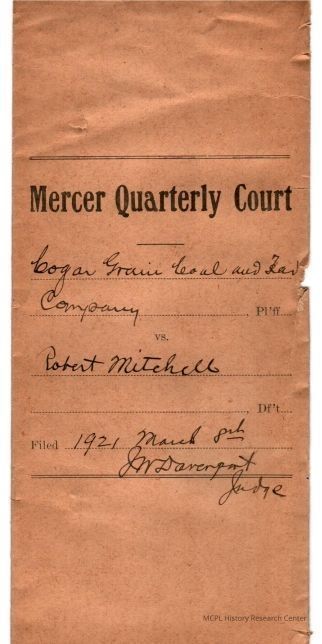 Mercer Quarterly Court
Cogar Grain Coal and
Company Pl'ff.
vs.
Robert Mitchell
Df't.
Filed 1921 March 8th
JW Davenport
Judge
MCPL History Research Center